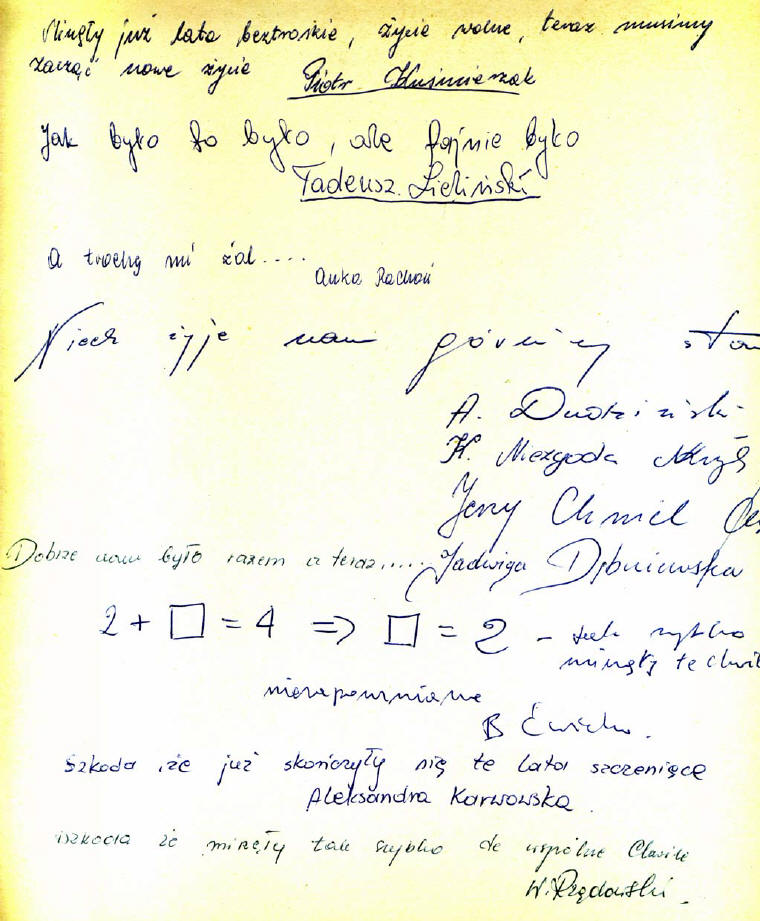 Minęły już lata beztroskie, życie wolne, teraz musimy
zacząć nowe życie Piotr Kuśmierzak
Jak było to było, ale fajnie było
Tadeusz Zieliński
A trochę mi żal....
Anka Rachoń
Niech żyje nam górniczy stan
A. Dudziński
K. Niezgoda
Jerzy Chmiel
Dobrze nam było razem a teraz..... Jadwiga Dębniewska
2 + □ = 4 => □ = 2 - tak szybko
minęły te chwil
niezapomniane
B Ćwiek.
Szkoda że już skończyły się te lata szczenięce
Aleksandra Karwowska
szkoda że minęły tak szybko te wspólne chwile
W.